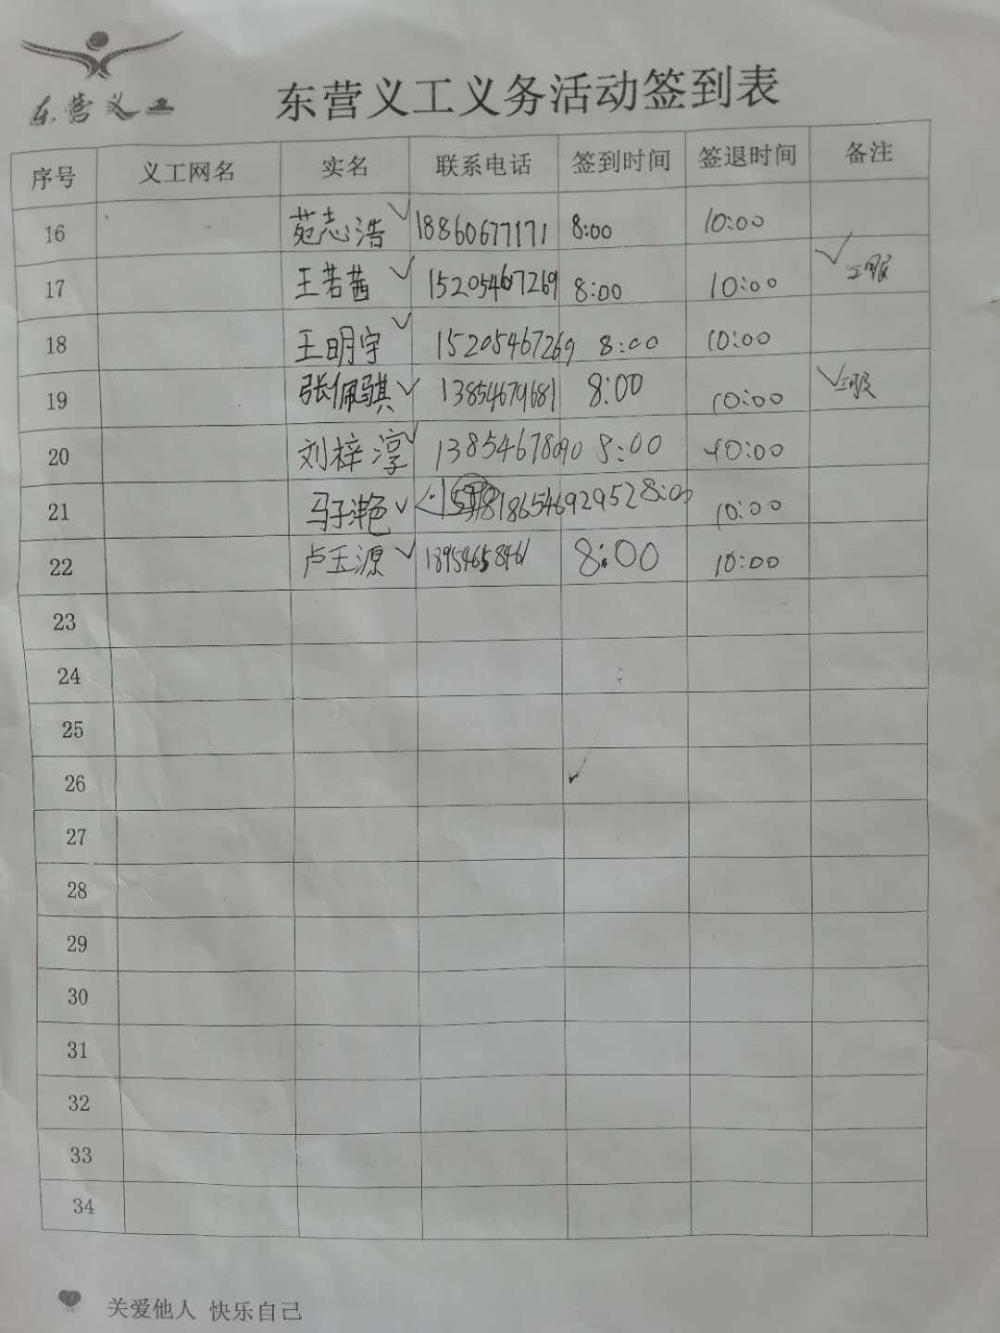 东营义工
东营义工义务活动签到表
序号 义工网名 实名 联系电话 签到时间 签退时间 备注
16 苑志浩 18860677171 8:00 10:00
17 王若茜 15205467269 8:00 10:00 工服
18 王明宇 15205467269 8:00 10:00
19 张佩骐 13854679681 8:00 10:00 工服
20 刘梓淳 13854678090 8:00 10:00
21 马子滟 18654692952 8:00 10:00
22 卢玉源 18954658461 8:00 10:00
23
24
25
26
27
28
29
30
31
32
33
34
关爱他人 快乐自己